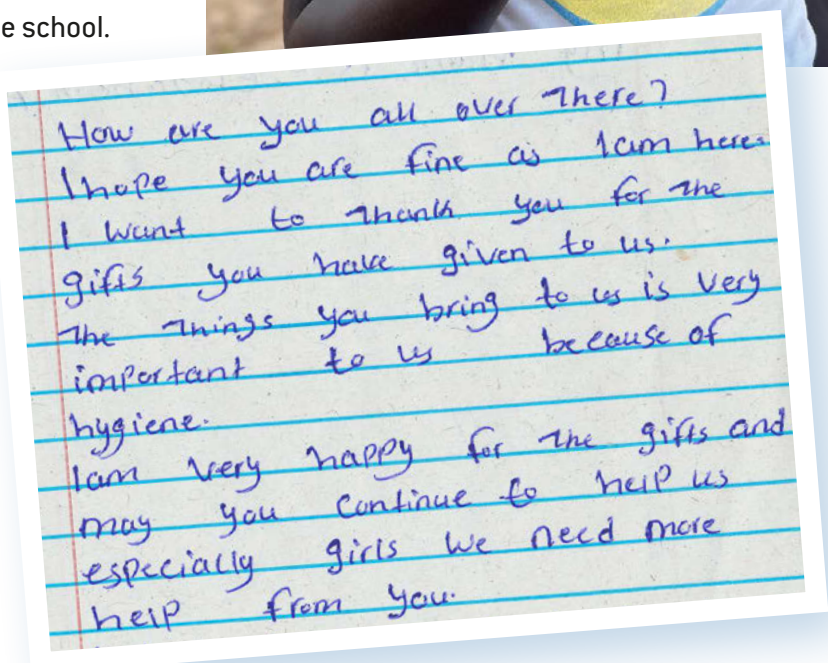 e school.
How are you all over there?
I hope you are fine as I am here.
I want to thank you for the
gifts you have given to us.
The things you bring to us is very
important to us because of
hygiene.
I am very happy for the gifts and
may you continue to help us
especially girls we need more
help from you.